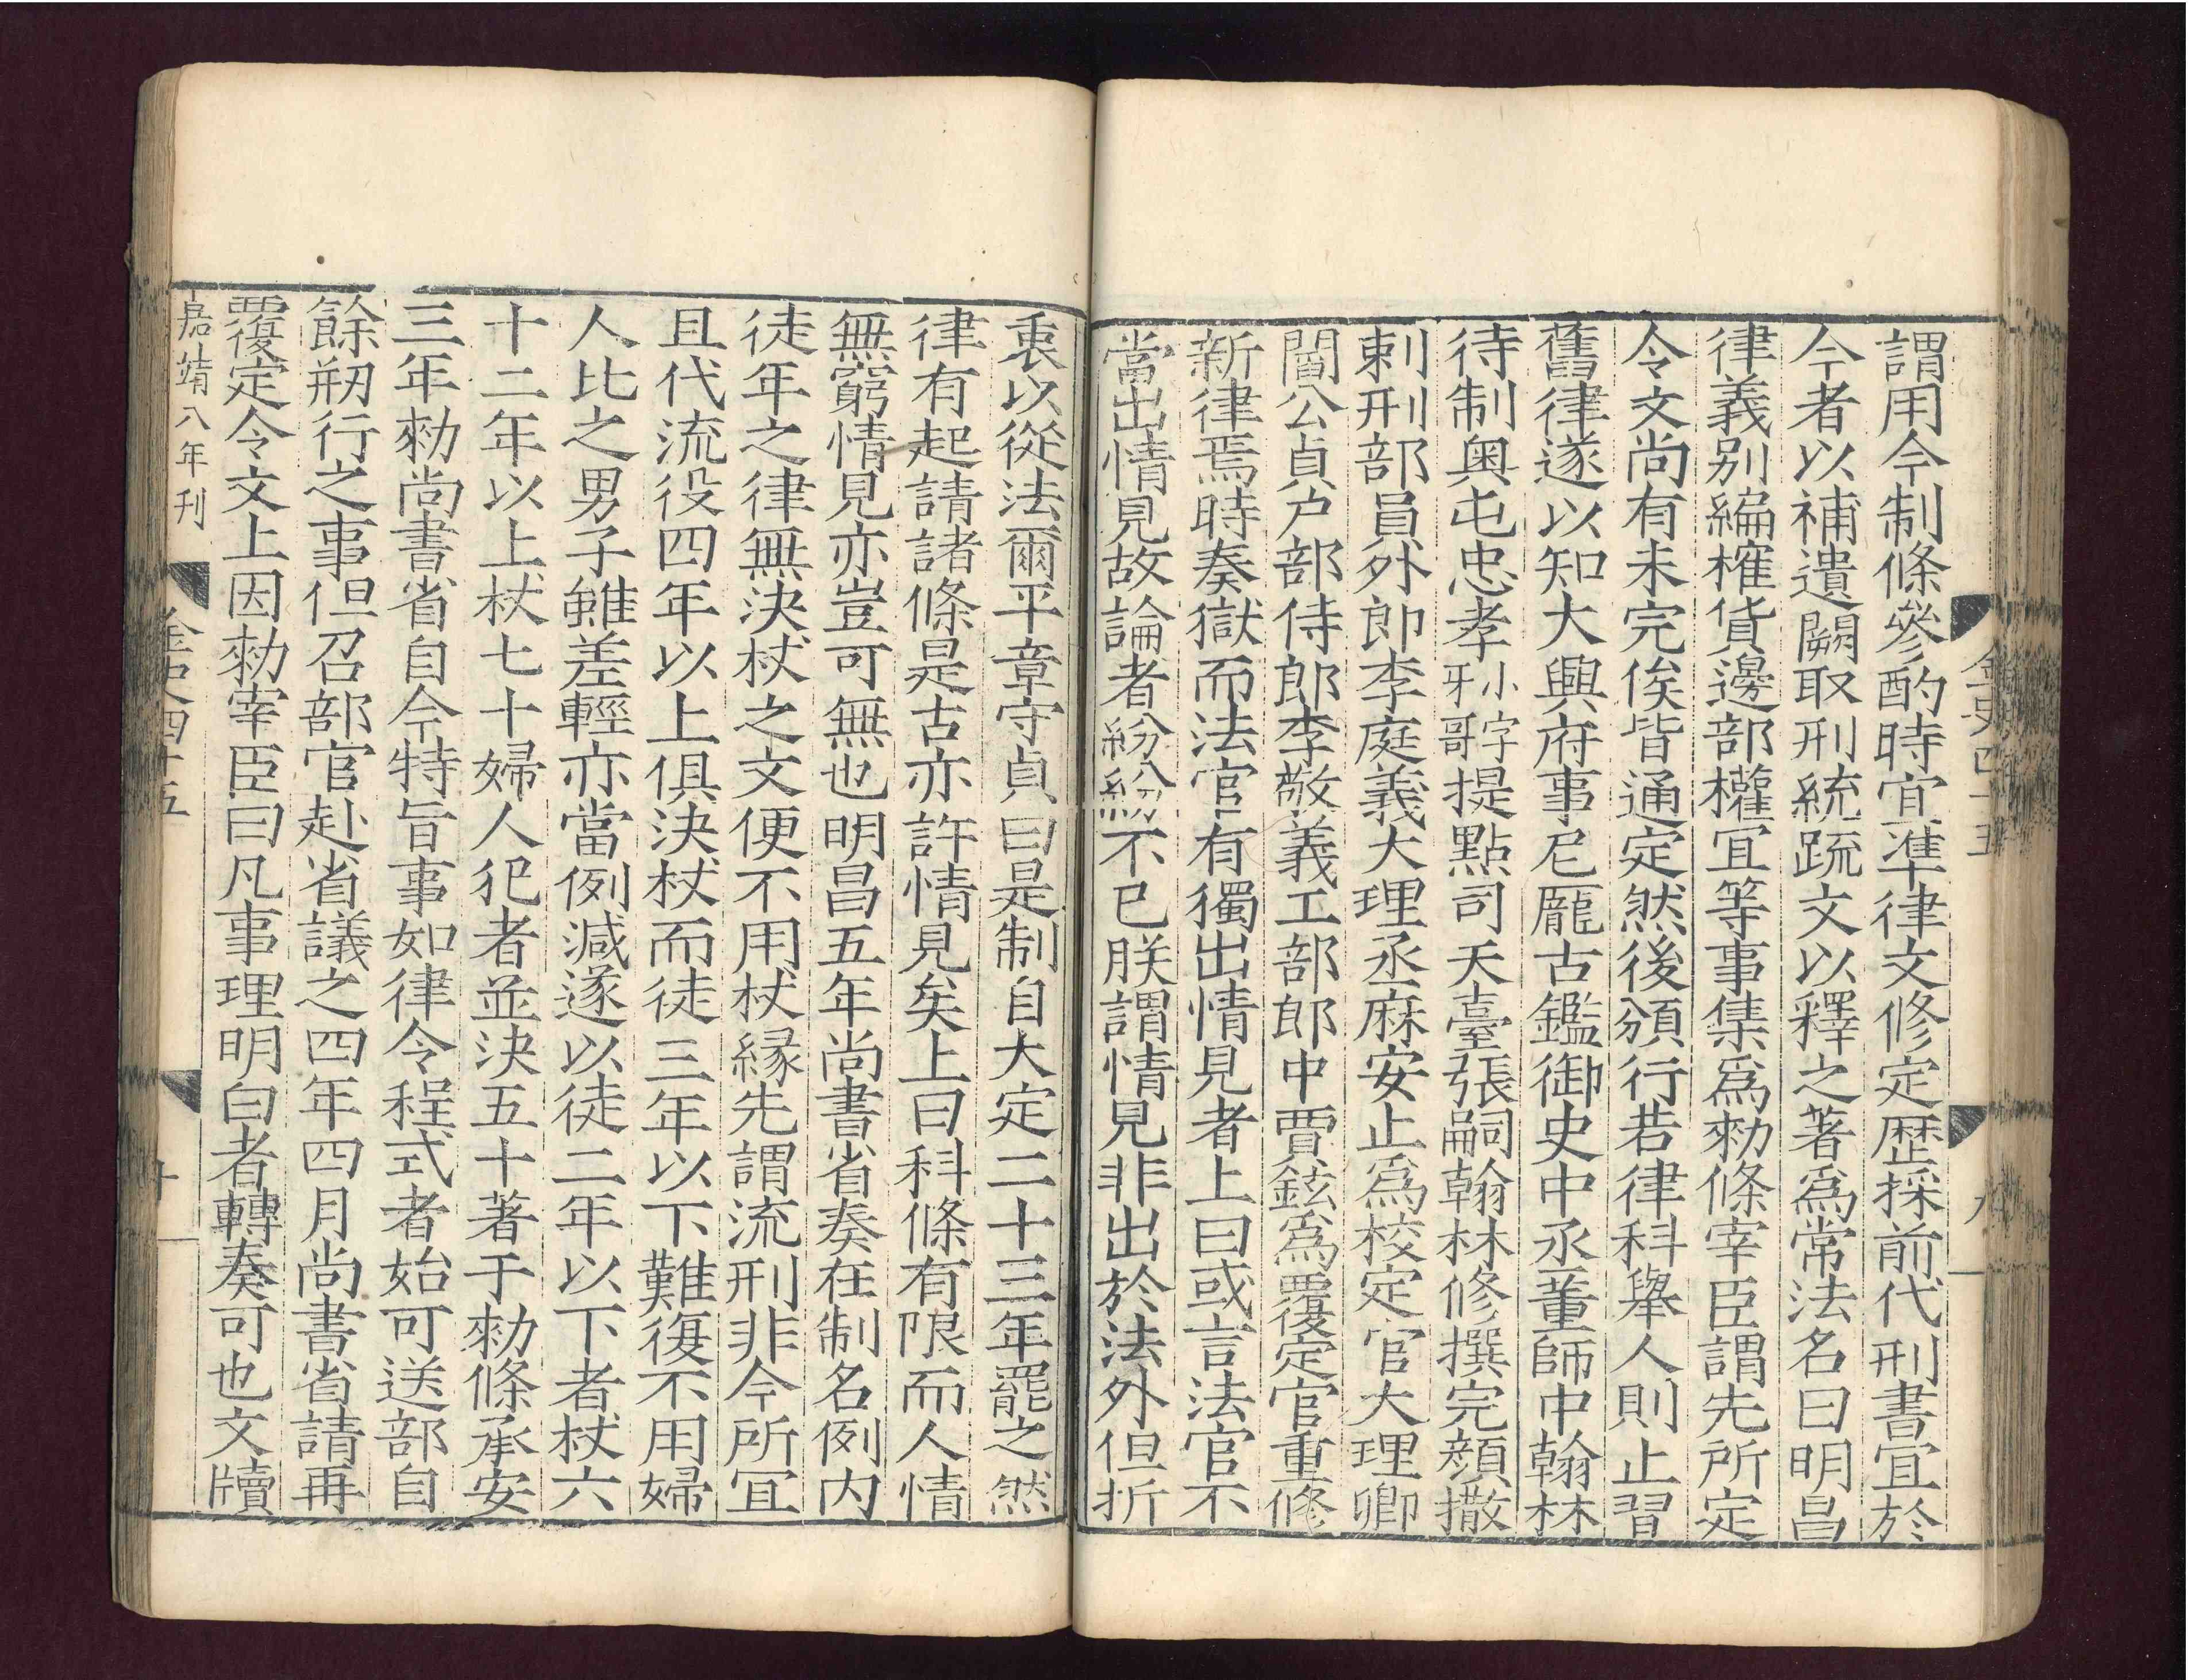 金史四十五
九
謂用今制條參酌時宜準律文修定歷採前代刑書宜於
今者以補遺闕取刑統疏文以釋之著爲常法名曰明昌
律義别編榷貨邊部權宜等事集爲勑條宰臣謂先所定
令文尚有未完俟皆通定然後頒行若律科舉人則止習
舊律遂以知大興府事尼厖古鑑御史中丞董師中翰林
待制奥屯忠孝小字牙哥提點司天臺張嗣翰林修撰完顔撒
剌刑部員外郎李庭義大理丞麻安止爲校定官大理卿
閻公貞户部侍郎李敬義工部郎中賈鉉爲覆定官重修
新律焉時奏獄而法官有獨出情見者上曰或言法官不
當出情見故論者紛紛不已朕謂情見非出於法外但折
衷以從法爾平章守貞曰是制自大定二十三年罷之然
律有起請諸條是古亦許情見矣上曰科條有限而人情
無窮情見亦豈可無也明昌五年尚書省奏在制名例内
徒年之律無決杖之文便不用杖縁先謂流刑非今所宜
且代流役四年以上俱決杖而徒三年以下難復不用婦
人比之男子雖差輕亦當例減遂以徒二年以下者杖六
十二年以上杖七十婦人犯者並決五十著于勑條承安
三年勑尚書省自今特旨事如律令程式者始可送部自
餘刱行之事但召部官赴省議之四年四月尚書省請再
覆定令文上因勑宰臣曰凡事理明白者轉奏可也文牘
嘉靖八年刊
金史四十五
十